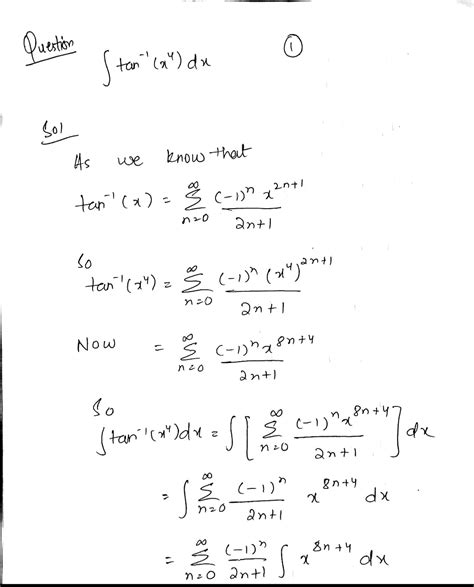 Question ①
∫ tan⁻¹(x⁴) dx
Sol
As we know that
tan⁻¹(x) = ∑_{n=0}^{∞} (-1)ⁿ x^{2n+1} / 2n+1
So
tan⁻¹(x⁴) = ∑_{n=0}^{∞} (-1)ⁿ (x⁴)^{2n+1} / 2n+1
Now = ∑_{n=0}^{∞} (-1)ⁿ x^{8n+4} / 2n+1
So
∫ tan⁻¹(x⁴) dx = ∫ [ ∑_{n=0}^{∞} (-1)ⁿ x^{8n+4} / 2n+1 ] dx
= ∫ ∑_{n=0}^{∞} (-1)ⁿ / 2n+1 x^{8n+4} dx
= ∑_{n=0}^{∞} (-1)ⁿ / 2n+1 ∫ x^{8n+4} dx